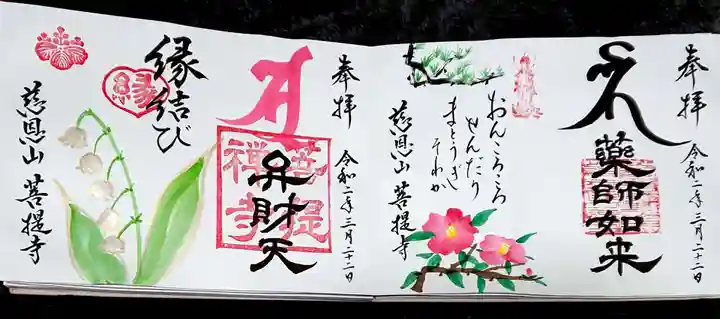 奉拝
令和二年三月二十二日
薬師如来
おんころころ
せんだり
まとうぎ
そわか
慈恩山 菩提寺
奉拝
令和二年三月二十二日
弁財天
菩提禅寺
縁結び
縁
慈恩山 菩提寺